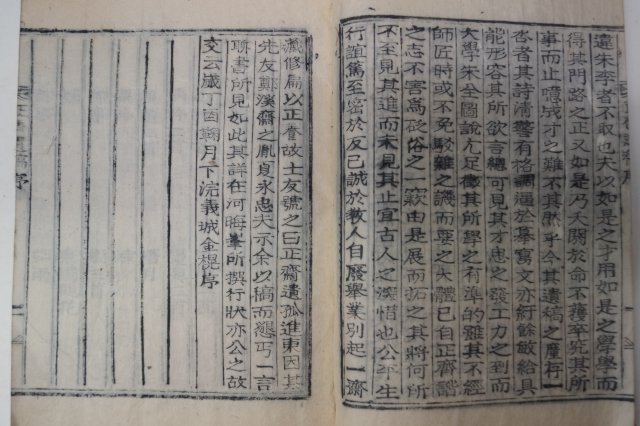 違朱李者不取也夫以如是之才用如是之學學而
得其門路之正又如是乃天閼於命不獲卒究其所
事而止噫成才之難不其然乎今其遺稿之
者其詩清警有格調逼於摹寫文亦紆餘敏給具
能形容其所欲言總可見其才忠之發工力之到而
大學朱全圖說尤足徵其所學之有準的雖其不經
師匠時或不免駁雜之譏而要之大體已自正齋諧
之志不害爲砭俗之一 由是展而拓之其將何所
不至見其進而未見其止宜古人之深惜也公平生
行誼篤至密於反己誠於敎人自廢擧業別起一齋
藏修扁以正 故士友號之曰正齋遺孤進東因其
先友鄭溪齋之胤 永忠夫示余以稿而懇丐一言
聊書所見如此其詳在河晦峯所撰行狀亦公之故
交云歲丁 月下浣義城金榥序
序